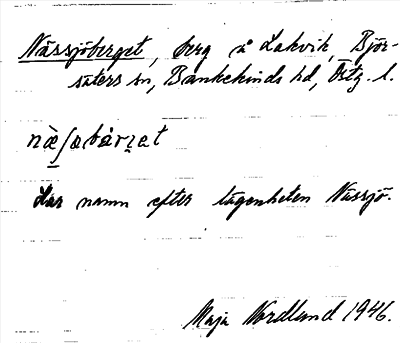 Nässjöberget, berg å Lakvik, Björ-
säters sn, Bankekinds hd, Östg. l.
næ̀ʃabàrɪ̯at
Har namn efter lägenheten Nässjö.
Maja Nordlund 1946.